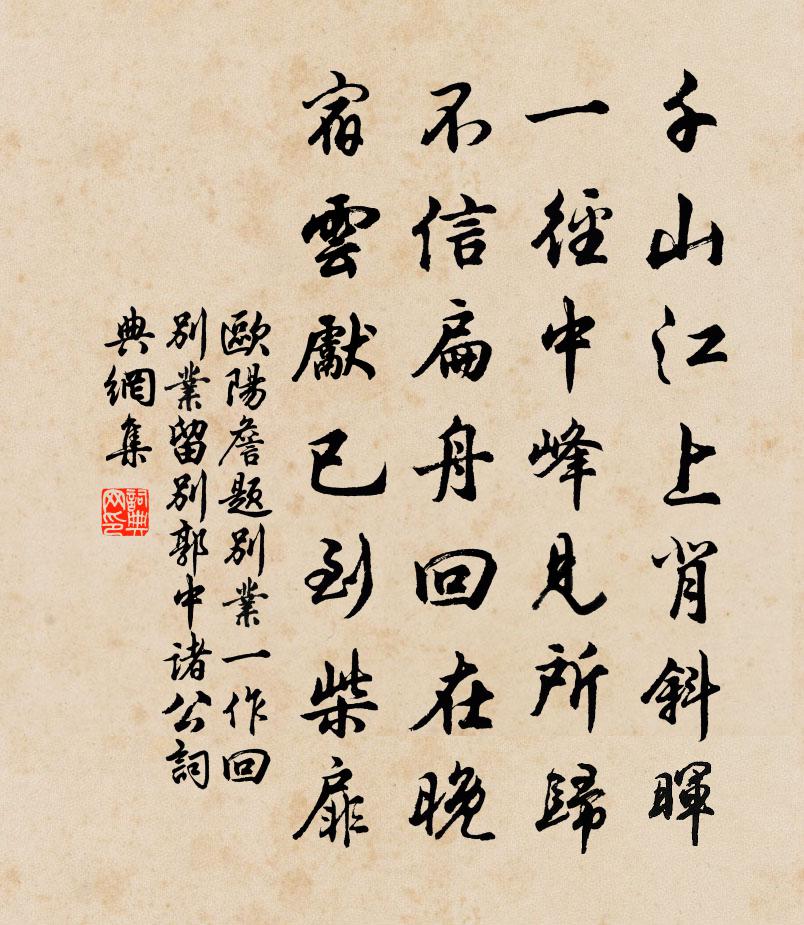 千山江上背斜暉
一徑中峰見所歸
不信扁舟回在晚
宿雲獻已到柴扉
歐陽詹題別業一作回
別業留別郭中諸公詞
典網集
詞典
网印